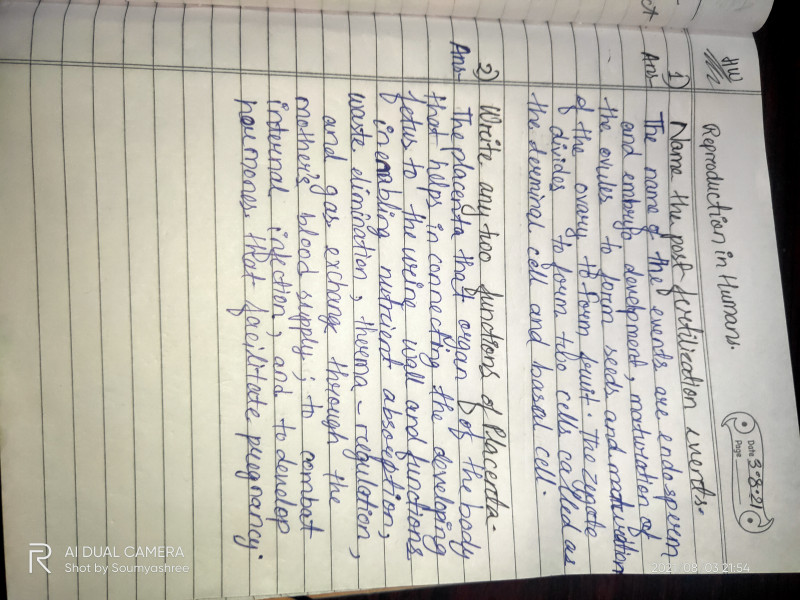 HW
Reproduction in Humans.
Date 3-8-21
Page
1) Name the post fertilization events.
Ans The name of the events are endosperm
and embryo development, maturation of
the ovules to form seeds and maturation
of the ovary to form fruit. The zygote
divides to form two cells called as
the terminal cell and basal cell.
2) Write any two functions of Placenta.
Ans The placenta that organ of the body
that helps in connecting the developing
fetus to the uterine wall and functions
in enabling nutrient absorption,
waste elimination, therma-regulation,
and gas exchange through the
mother's blood supply; to combat
internal infection; and to develop
hormones that facilitate pregnancy.
AI DUAL CAMERA
Shot by Soumyashree
2021/08/03 21:54